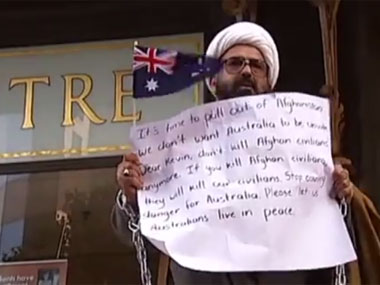 TRE
It's time to pull out of Afghanistan
We don't want Australia to be
Dear Kevin, don't kill Afghan civilians
anymore. If you kill Afghan civilians
they will kill our civilians. Stop
danger for Australia. Please let us
Australians live in peace.